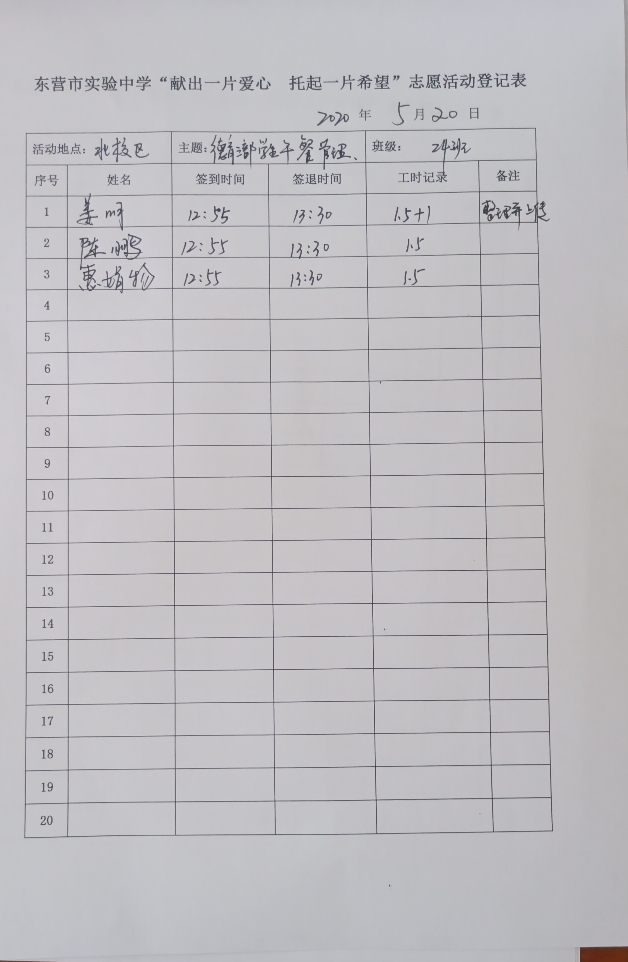 东营市实验中学“献出一片爱心 托起一片希望”志愿活动登记表
2020 年 5 月 20 日
活动地点: 北校区 主题: 德育部学生午餐管理、 班级: 24班
序号 姓名 签到时间 签退时间 工时记录 备注
1 姜 12:55 13:30 1.5+1 整理并上传
2 陈鹏 12:55 13:30 1.5
3 惠娟 12:55 13:30 1.5
4
5
6
7
8
9
10
11
12
13
14
15
16
17
18
19
20